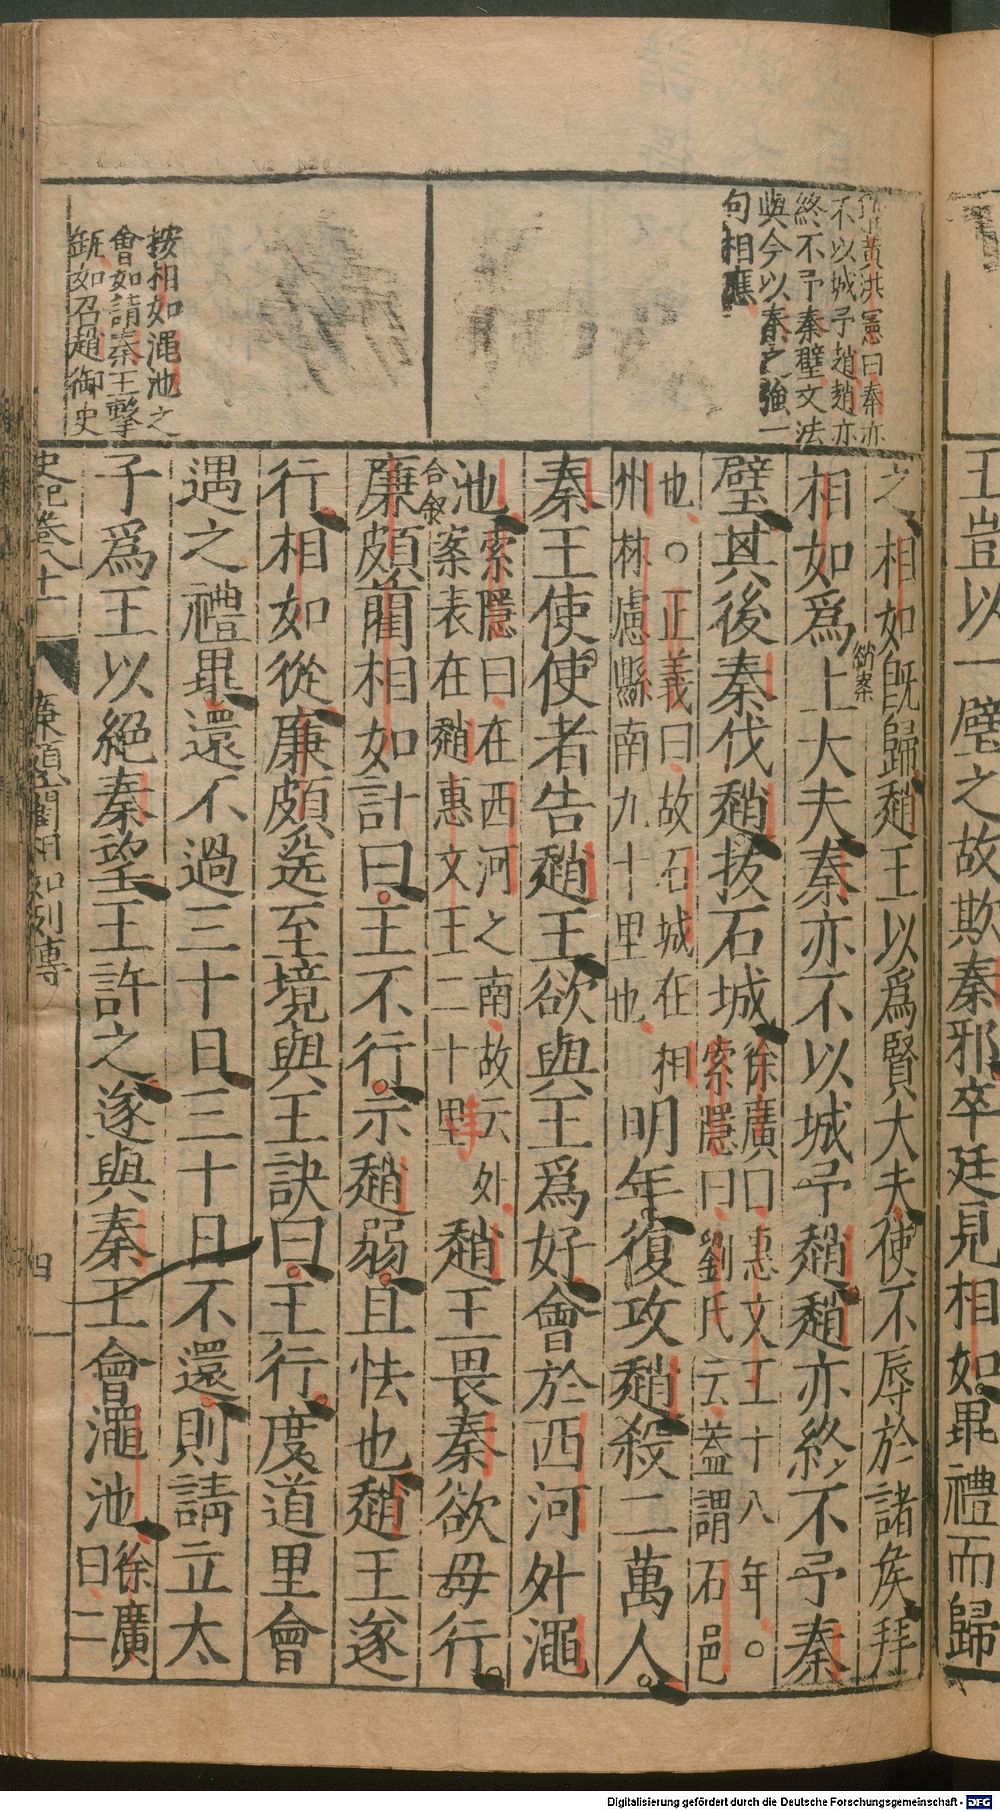 王豈以一璧之故欺秦邪卒廷見相如畢禮而歸
之相如既歸趙王以爲賢大夫使不辱於諸侯拜
結案
相如爲上大夫秦亦不以城予趙趙亦終不予秦
璧其後秦伐趙拔石城
徐廣曰惠文王十八年○
索隱曰劉氏云蓋謂石邑
也○正義曰故石城在相
州林慮縣南九十里也
明年復攻趙殺二萬人
秦王使使者告趙王欲與王爲好會於西河外澠
池
索隱曰在西河之南故云外
案表在趙惠文王二十年
合叙
趙王畏秦欲毋行
廉頗藺相如計曰王不行示趙弱且怯也趙王遂
行相如從廉頗送至境與王訣曰王行度道里會
遇之禮畢還不過三十日三十日不還則請立太
子爲王以絕秦望王許之遂與秦王會澠池
徐廣
曰二
黃洪憲曰奉亦
不以城予趙趙亦
終不予秦璧文法
與今以秦之強一
句相應
按相如澠池之
會如請秦王擊
缻如召趙御史
史記卷八十一
廉頗藺相如列傳
四
Digitalisierung gefördert durch die Deutsche Forschungsgemeinschaft - DFG